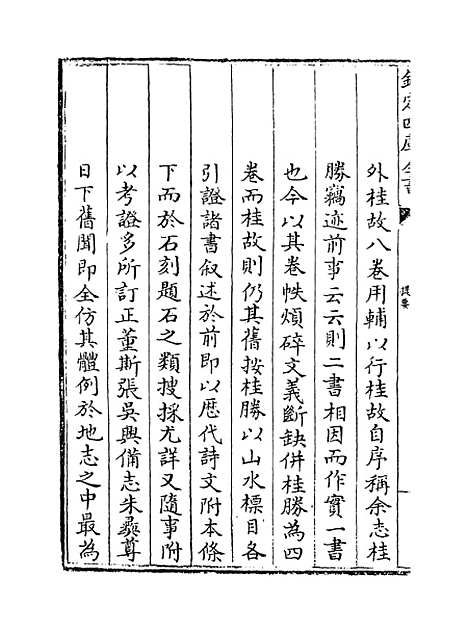 欽定四庫全書
提要
外桂故八卷用輔以行桂故自序稱余志桂
勝竊迹前事云云則二書相因而作實一書
也今以其卷帙煩碎文義斷缺併桂勝為四
卷而桂故則仍其舊按桂勝以山水標目各
引證諸書叙述於前即以歴代詩文附本條
下而於石刻題石之類搜採尤詳又隨事附
以考證多所訂正董斯張吳興備志朱彞尊
日下舊聞即全仿其體例於地志之中最為